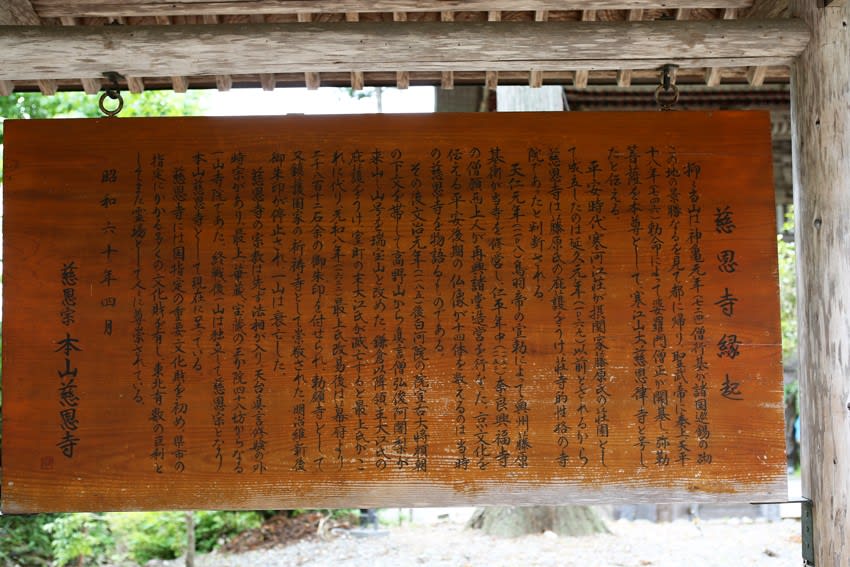 慈恩寺縁起
抑々当山は神亀元年(七二四)僧行基が諸国巡錫の砌
この地の景勝なるを見て都に帰り、聖武帝に奏上天平
十八年(七四六)勅命によって婆羅門僧正が開基し、弥勒
菩薩を本尊として、寒江山大慈恩律寺と号し
たと伝える。
平安時代、寒河江荘が摂関家藤原氏の荘園とし
て成立したのは延久元年(一〇六九)以前とされるから
慈恩寺は藤原氏の庇護をうけ荘寺的性格の寺
院であったと判断される。
天仁元年(一一〇八)鳥羽帝の宣勅によって奥州の藤原
基衡が当寺を修営し、仁平年中(一一五一)奈良興福寺
の僧願西上人が再興諸堂造営を行なった。京の文化を
伝える平安後期の仏像が十四体を数えるのは当時
の慈恩寺を物語るものである。
その後文治元年(一一八五)後白河院の院宣右大将頼朝
の下文を帯して高野山から真言僧弘俊阿闍梨が
来山し山号を瑞宝山と改めた。鎌倉以降領主大江氏の
庇護をうけ室町の末大江氏が滅亡すると最上氏がこ
れに代り元和八年(一六二二)最上氏改易後は幕府より
二千八百十二石余の御朱印を付せられ、勅願寺として
又鎮護国家の祈祷寺として崇敬された。明治維新後
御朱印が停止され一山は衰亡した。
慈恩寺の宗教は先ず法相が入り、天台真言修験の外
時宗があり、最上、華蔵、宝蔵の三か院四十八坊からなる
一山寺院であった。終戦後一山は独立して慈恩宗となり
本山慈恩寺として現在に至っている。
慈恩寺には国指定の重要文化財を初め、県市の
指定にかかる多くの文化財を有し、東北有数の巨刹と
してまた霊場として人に尊崇されている。
昭和六十年四月
慈恩宗 本山慈恩寺